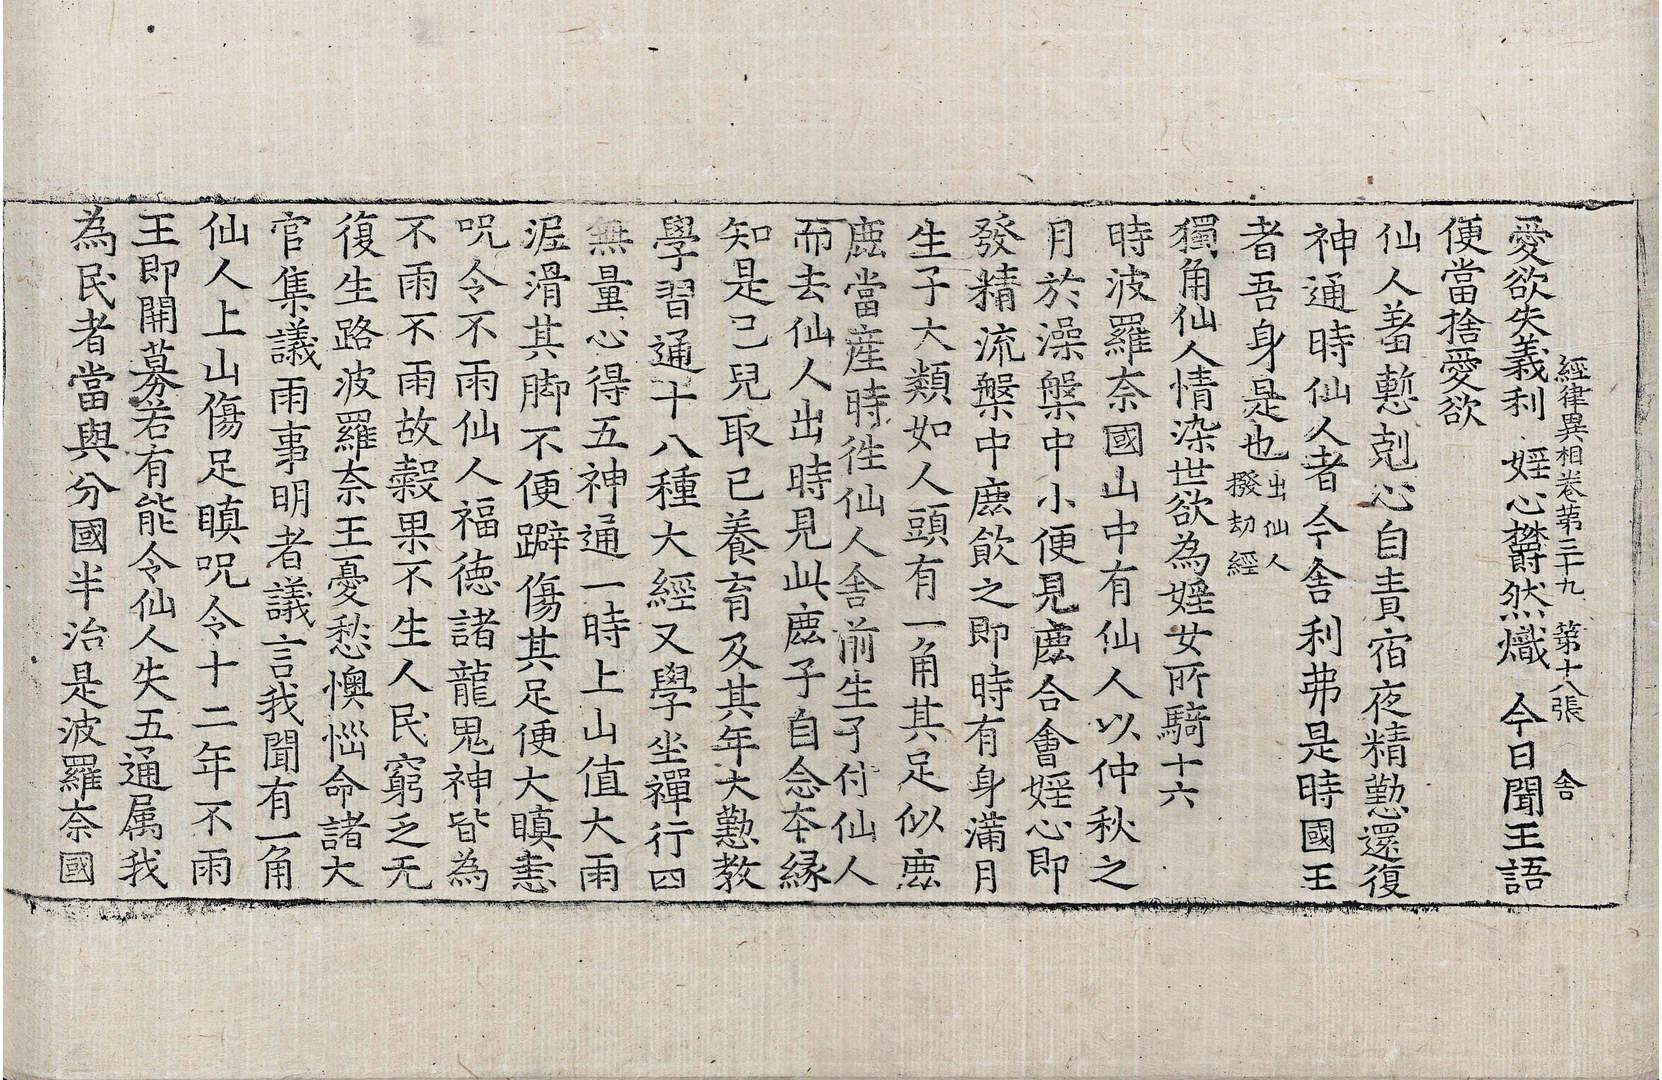 經律異相卷第三十九 第十八張 舍
愛欲失義利 婬心欝然熾 今日聞王語
便當捨愛欲
仙人羞慙剋心自責宿夜精懃還復
神通時仙人者今舍利弗是時國王
者吾身是也出仙人撥劫經
獨角仙人情染世欲為婬女所騎十六
時波羅奈國山中有仙人以仲秋之
月於澡槃中小便見鹿合會婬心即
發精流槃中鹿飲之即時有身滿月
生子大類如人頭有一角其足似鹿
鹿當產時徃仙人舍前生子付仙人
而去仙人出時見此鹿子自念本緣
知是己兒取已養育及其年大懃教
學習通十八種大經又學坐禪行四
無量心得五神通一時上山值大雨
泥滑其脚不便躃傷其足便大瞋恚
呪令不雨仙人福德諸龍鬼神皆為
不雨不雨故穀果不生人民窮乏无
復生路波羅奈王憂愁懊惱命諸大
官集議雨事明者議言我聞有一角
仙人上山傷足瞋呪令十二年不雨
王即開募若有能令仙人失五通属我
為民者當與分國半治是波羅奈國